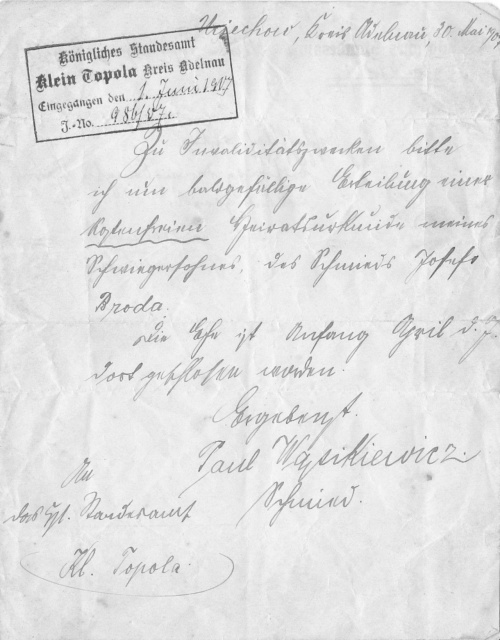 Uciechow, Kreis Adelnau, 30. Mai 190
Königliches Standesamt
Klein Topola Kreis Adelnau
Eingegangen den 1. Juni 1907
J.-No. 986/07.
Zu Invaliditätszwecken bitte
ich um baldgefällige Erteilung einer
kostenfreien Heiratsurkunde meines
Schwiegersohnes, des Schmieds Josefs
Broda.
Die Ehe ist Anfang April d. J.
dort geschlossen worden.
Ergebenst.
Paul Wąsikiewicz.
Schmied.
An
das Standesamt
Kl. Topola